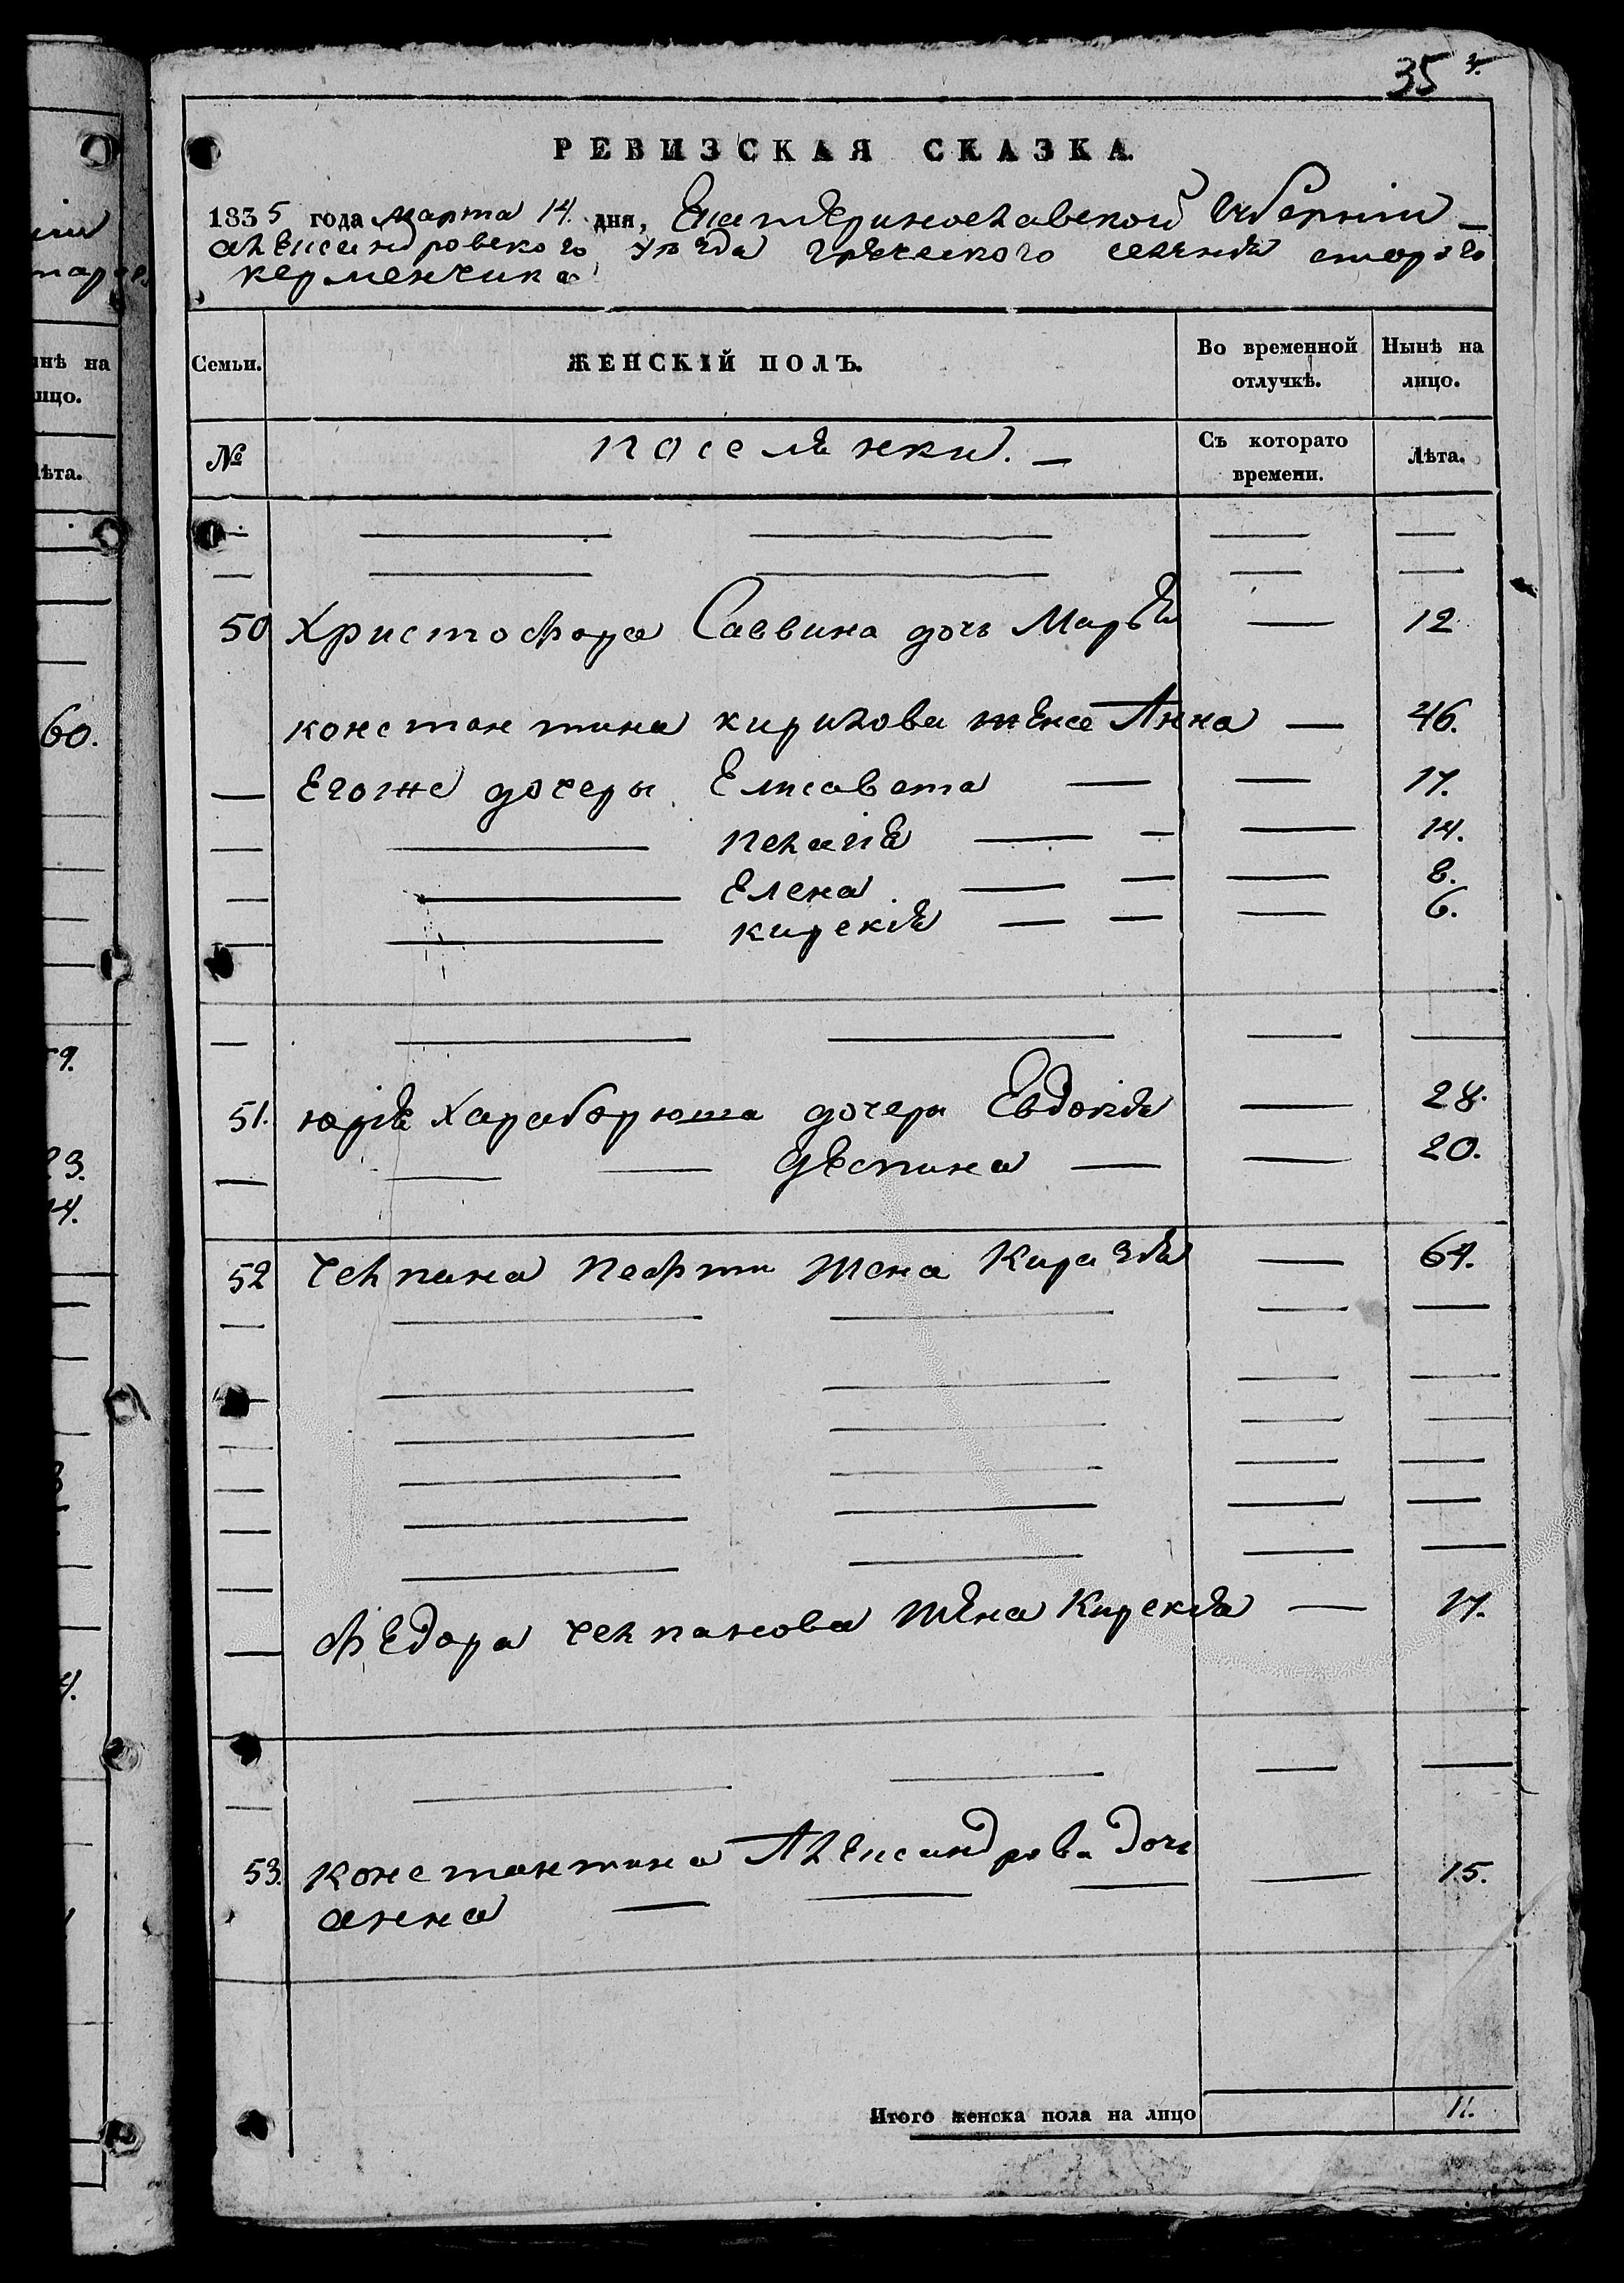 35
РЕВИЗСКАЯ СКАЗКА.
1835 года марта 14. дня, Екатеринославской Губернии
александровского уезда греческого селения старого
керменчика
Семьи. ЖЕНСКІЙ ПОЛЪ. Во временной отлучкѣ. Нынѣ на лицо.
№ поселянки. Съ которато времени. Лѣта.
50 Христофора Саввина дочь Марья — 12
константина кирилова жена Анна — 46.
— Егоже дочеры Елисавета — — 17.
— — пелагія — — — 14.
— — Елена — — — 8.
— — кирекія — — — 6.
51. юрія Хараборюша дочеры Евдокія — 28.
— — — деспина — — 20.
52 Челпана Пефти жена Киразія — 64.
— Федора челпанова жена Кирекія — 17.
53. константина Александрова дочь
анна — — — — 15.
Итого женска пола на лицо 11.
нѣ на
ицо.
ѣта.
60.
9.
23.
4.
4.